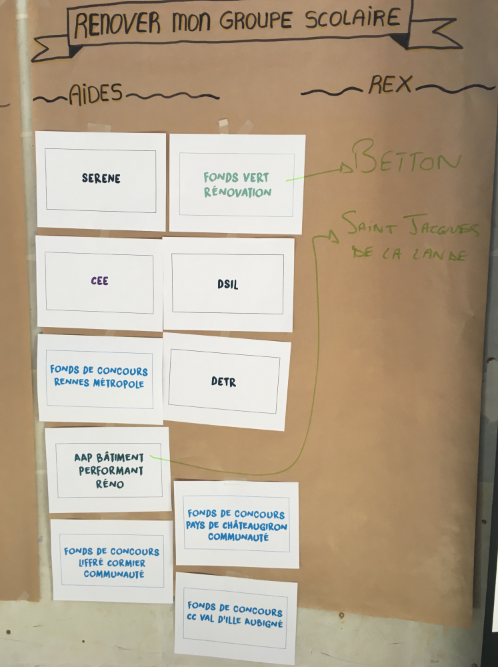 RENOVER MON GROUPE SCOLAIRE
AIDES
REX
SERENE
FONDS VERT
RÉNOVATION
BETTON
SAINT JACQUES
DE LA LANDE
CEE
DSIL
FONDS DE CONCOURS
RENNES MÉTROPOLE
DETR
AAP BÂTIMENT
PERFORMANT
RÉNO
FONDS DE CONCOURS
PAYS DE CHÂTEAUGIRON
COMMUNAUTÉ
FONDS DE CONCOURS
LIFFRÉ CORMIER
COMMUNAUTÉ
FONDS DE CONCOURS
CC VAL D'ILLE AUBIGNÉ